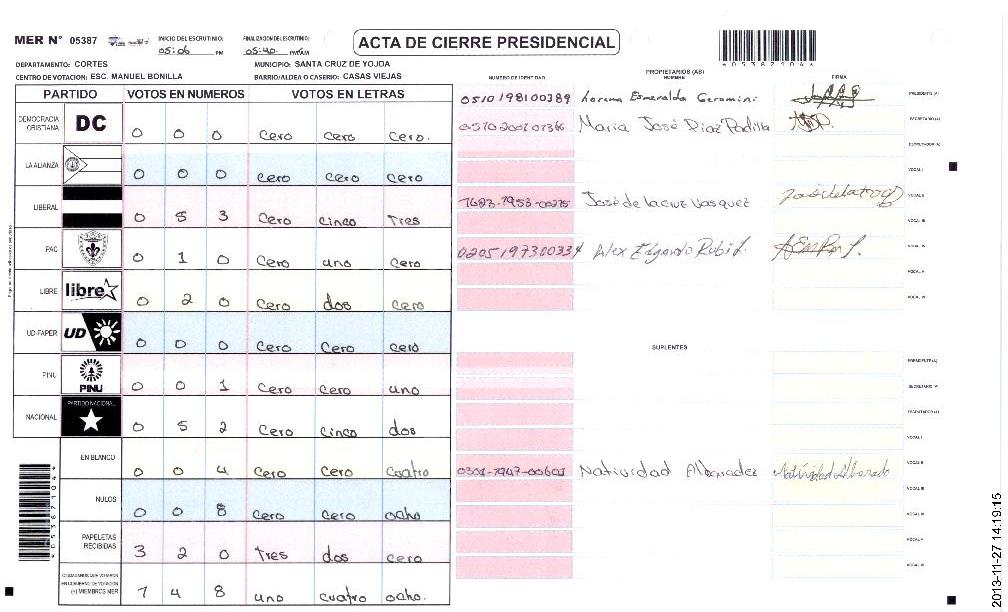 MER N° 05387 INICIO DEL ESCRUTINIO: 05:06 PM FINALIZACION DEL ESCRUTINIO: 05:40 PM/AM ACTA DE CIERRE PRESIDENCIAL
DEPARTAMENTO: CORTES MUNICIPIO: SANTA CRUZ DE YOJOA
CENTRO DE VOTACION: ESC. MANUEL BONILLA BARRIO/ALDEA O CASERIO: CASAS VIEJAS
PROPIETARIOS (AS)
NUMERO DE IDENTIDAD NOMBRE FIRMA
PARTIDO VOTOS EN NUMEROS VOTOS EN LETRAS
0510198100389 Lorena Esmeralda Geromini PRESIDENTE (A)
DEMOCRACIA CRISTIANA DC 0 0 0 Cero Cero Cero.
0510200101366 Maria José Diaz Padilla SECRETARIO (A)
ESCRUTADOR (A)
LA ALIANZA 0 0 0 Cero Cero Cero
VOCAL I
LIBERAL 0 5 3 Cero Cinco Tres
1683-1953-00275 José de la cruz Vasquez VOCAL II
VOCAL III
PAC 0 1 0 Cero uno Cero
0205197300334 Alex Edgardo Rubi J. VOCAL IV
VOCAL V
LIBRE libre 0 2 0 Cero dos Cero
VOCAL VI
UD-FAPER UD 0 0 0 Cero Cero Cero
SUPLENTES
PINU PINU 0 0 1 Cero Cero uno
PRESIDENTE (A)
SECRETARIO (A)
NACIONAL PARTIDO NACIONAL 0 5 2 Cero Cinco dos
ESCRUTADOR (A)
VOCAL I
EN BLANCO 0 0 4 Cero Cero Cuatro
0301-1947-00601 Natividad Natividad Alvarado VOCAL II
VOCAL III
NULOS 0 0 8 Cero Cero ocho
VOCAL IV
PAPELETAS RECIBIDAS 3 2 0 Tres dos Cero
VOCAL V
VOCAL VI
CIUDADANOS QUE VOTARON EN CUADERNO DE VOTACION (+) MIEMBROS MER 1 4 8 uno cuatro ocho.
2013-11-27 14:19:15